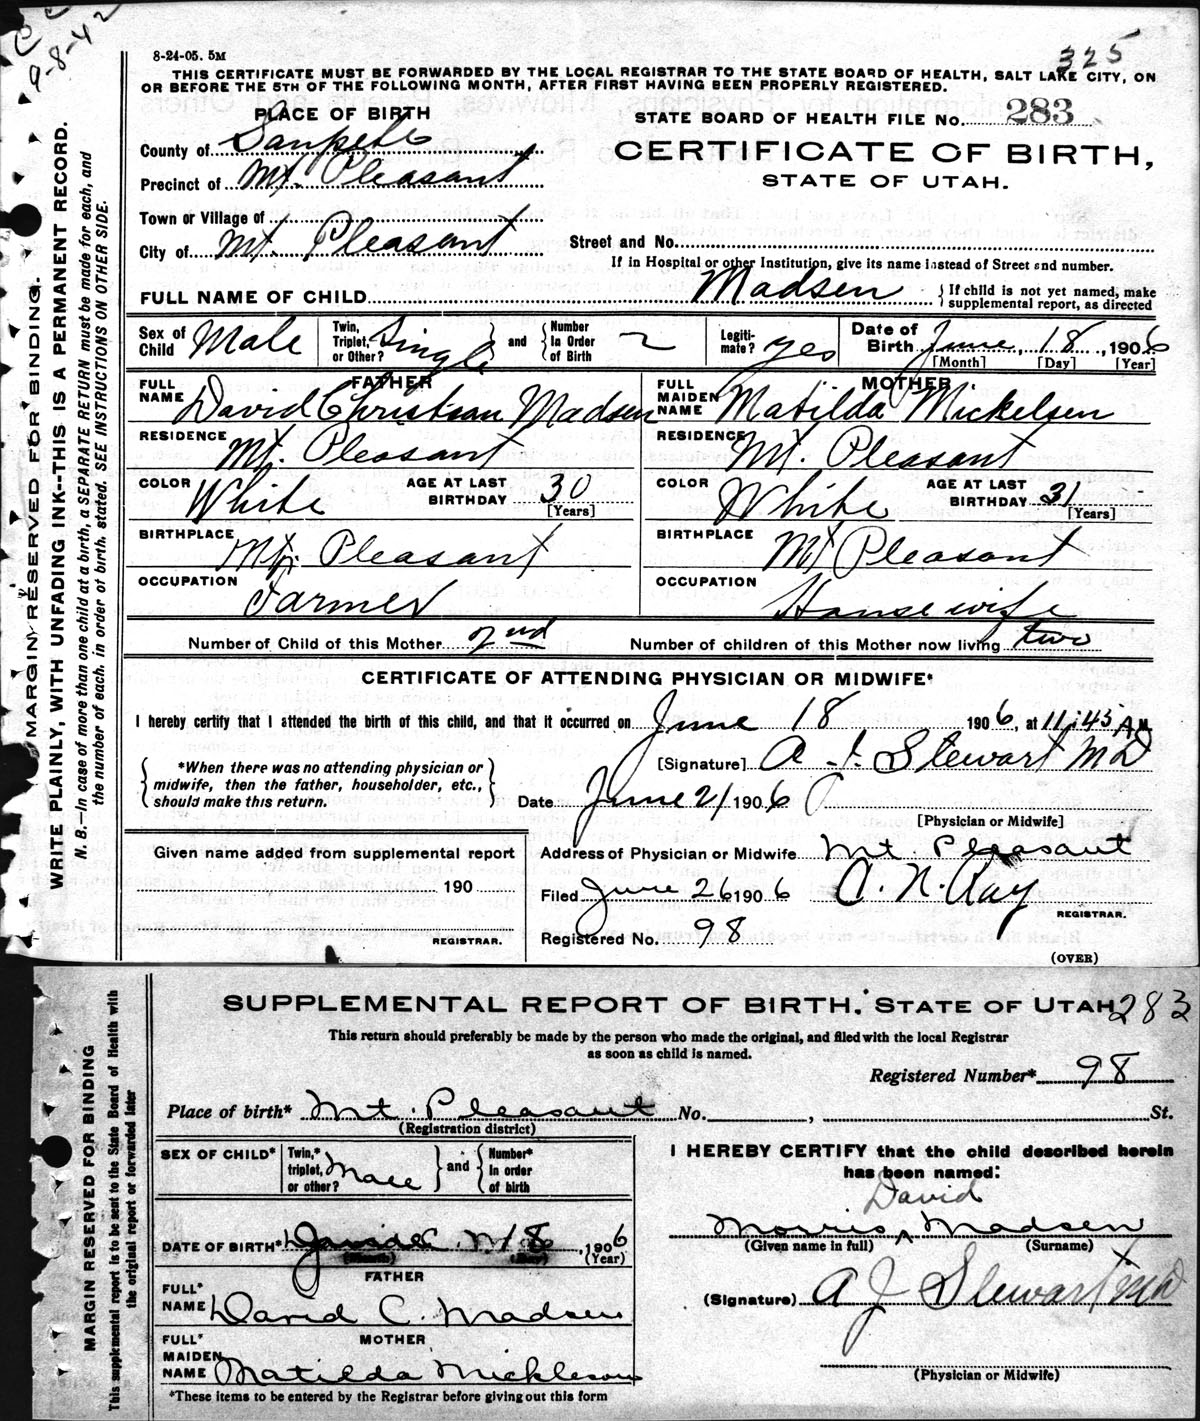 9-8-42
8-24-05. 5M
325
THIS CERTIFICATE MUST BE FORWARDED BY THE LOCAL REGISTRAR TO THE STATE BOARD OF HEALTH, SALT LAKE CITY, ON
OR BEFORE THE 5TH OF THE FOLLOWING MONTH, AFTER FIRST HAVING BEEN PROPERLY REGISTERED.
PLACE OF BIRTH
STATE BOARD OF HEALTH FILE No. 283
County of Sanpete
CERTIFICATE OF BIRTH,
Precinct of Mt. Pleasant
STATE OF UTAH.
Town or Village of
City of Mt. Pleasant
Street and No.
If in Hospital or other Institution, give its name instead of Street and number.
FULL NAME OF CHILD Madsen { If child is not yet named, make
supplemental report, as directed
Sex of Child Male
Twin, Triplet, or Other? Single } and { Number In Order of Birth 2
Legitimate? yes
Date of Birth June, 18, 1906
[Month] [Day] [Year]
FATHER
FULL NAME David Christian Madsen
RESIDENCE Mt. Pleasant
COLOR White AGE AT LAST BIRTHDAY 30
[Years]
BIRTHPLACE Mt. Pleasant
OCCUPATION Farmer
MOTHER
FULL MAIDEN NAME Matilda Mickelsen
RESIDENCE Mt. Pleasant
COLOR White AGE AT LAST BIRTHDAY 31
[Years]
BIRTHPLACE Mt Pleasant
OCCUPATION Housewife
Number of Child of this Mother 2nd Number of children of this Mother now living two
CERTIFICATE OF ATTENDING PHYSICIAN OR MIDWIFE*
I hereby certify that I attended the birth of this child, and that it occurred on June 18 1906, at 11:45 A M.
{ *When there was no attending physician or
midwife, then the father, householder, etc.,
should make this return. }
[Signature] A. J. Stewart MD
Date June 21 1906
[Physician or Midwife]
Given name added from supplemental report
190
REGISTRAR.
Address of Physician or Midwife Mt. Pleasant
Filed June 26 1906 A. N. Ray
REGISTRAR.
Registered No. 98
(OVER)
MARGIN RESERVED FOR BINDING.
WRITE PLAINLY, WITH UNFADING INK--THIS IS A PERMANENT RECORD.
N. B.—In case of more than one child at a birth, a SEPARATE RETURN must be made for each, and
the number of each, in order of birth, stated. SEE INSTRUCTIONS ON OTHER SIDE.
SUPPLEMENTAL REPORT OF BIRTH. STATE OF UTAH 283
This return should preferably be made by the person who made the original, and filed with the local Registrar
as soon as child is named.
Registered Number* 98
Place of birth* Mt. Pleasant No. , St.
(Registration district)
SEX OF CHILD*
Twin,* triplet, or other? Male } and { Number* In order of birth
DATE OF BIRTH* 18, 1906
(Month) (Day) (Year)
FATHER
FULL* NAME David C. Madsen
MOTHER
FULL* MAIDEN NAME Matilda Mickleson
*These items to be entered by the Registrar before giving out this form
I HEREBY CERTIFY that the child described herein
has been named:
David
Morris ^ Madsen
(Given name in full) (Surname)
(Signature) A J Stewart MD
(Physician or Midwife)
MARGIN RESERVED FOR BINDING
This supplemental report is to be sent to the State Board of Health with
the original report or forwarded later